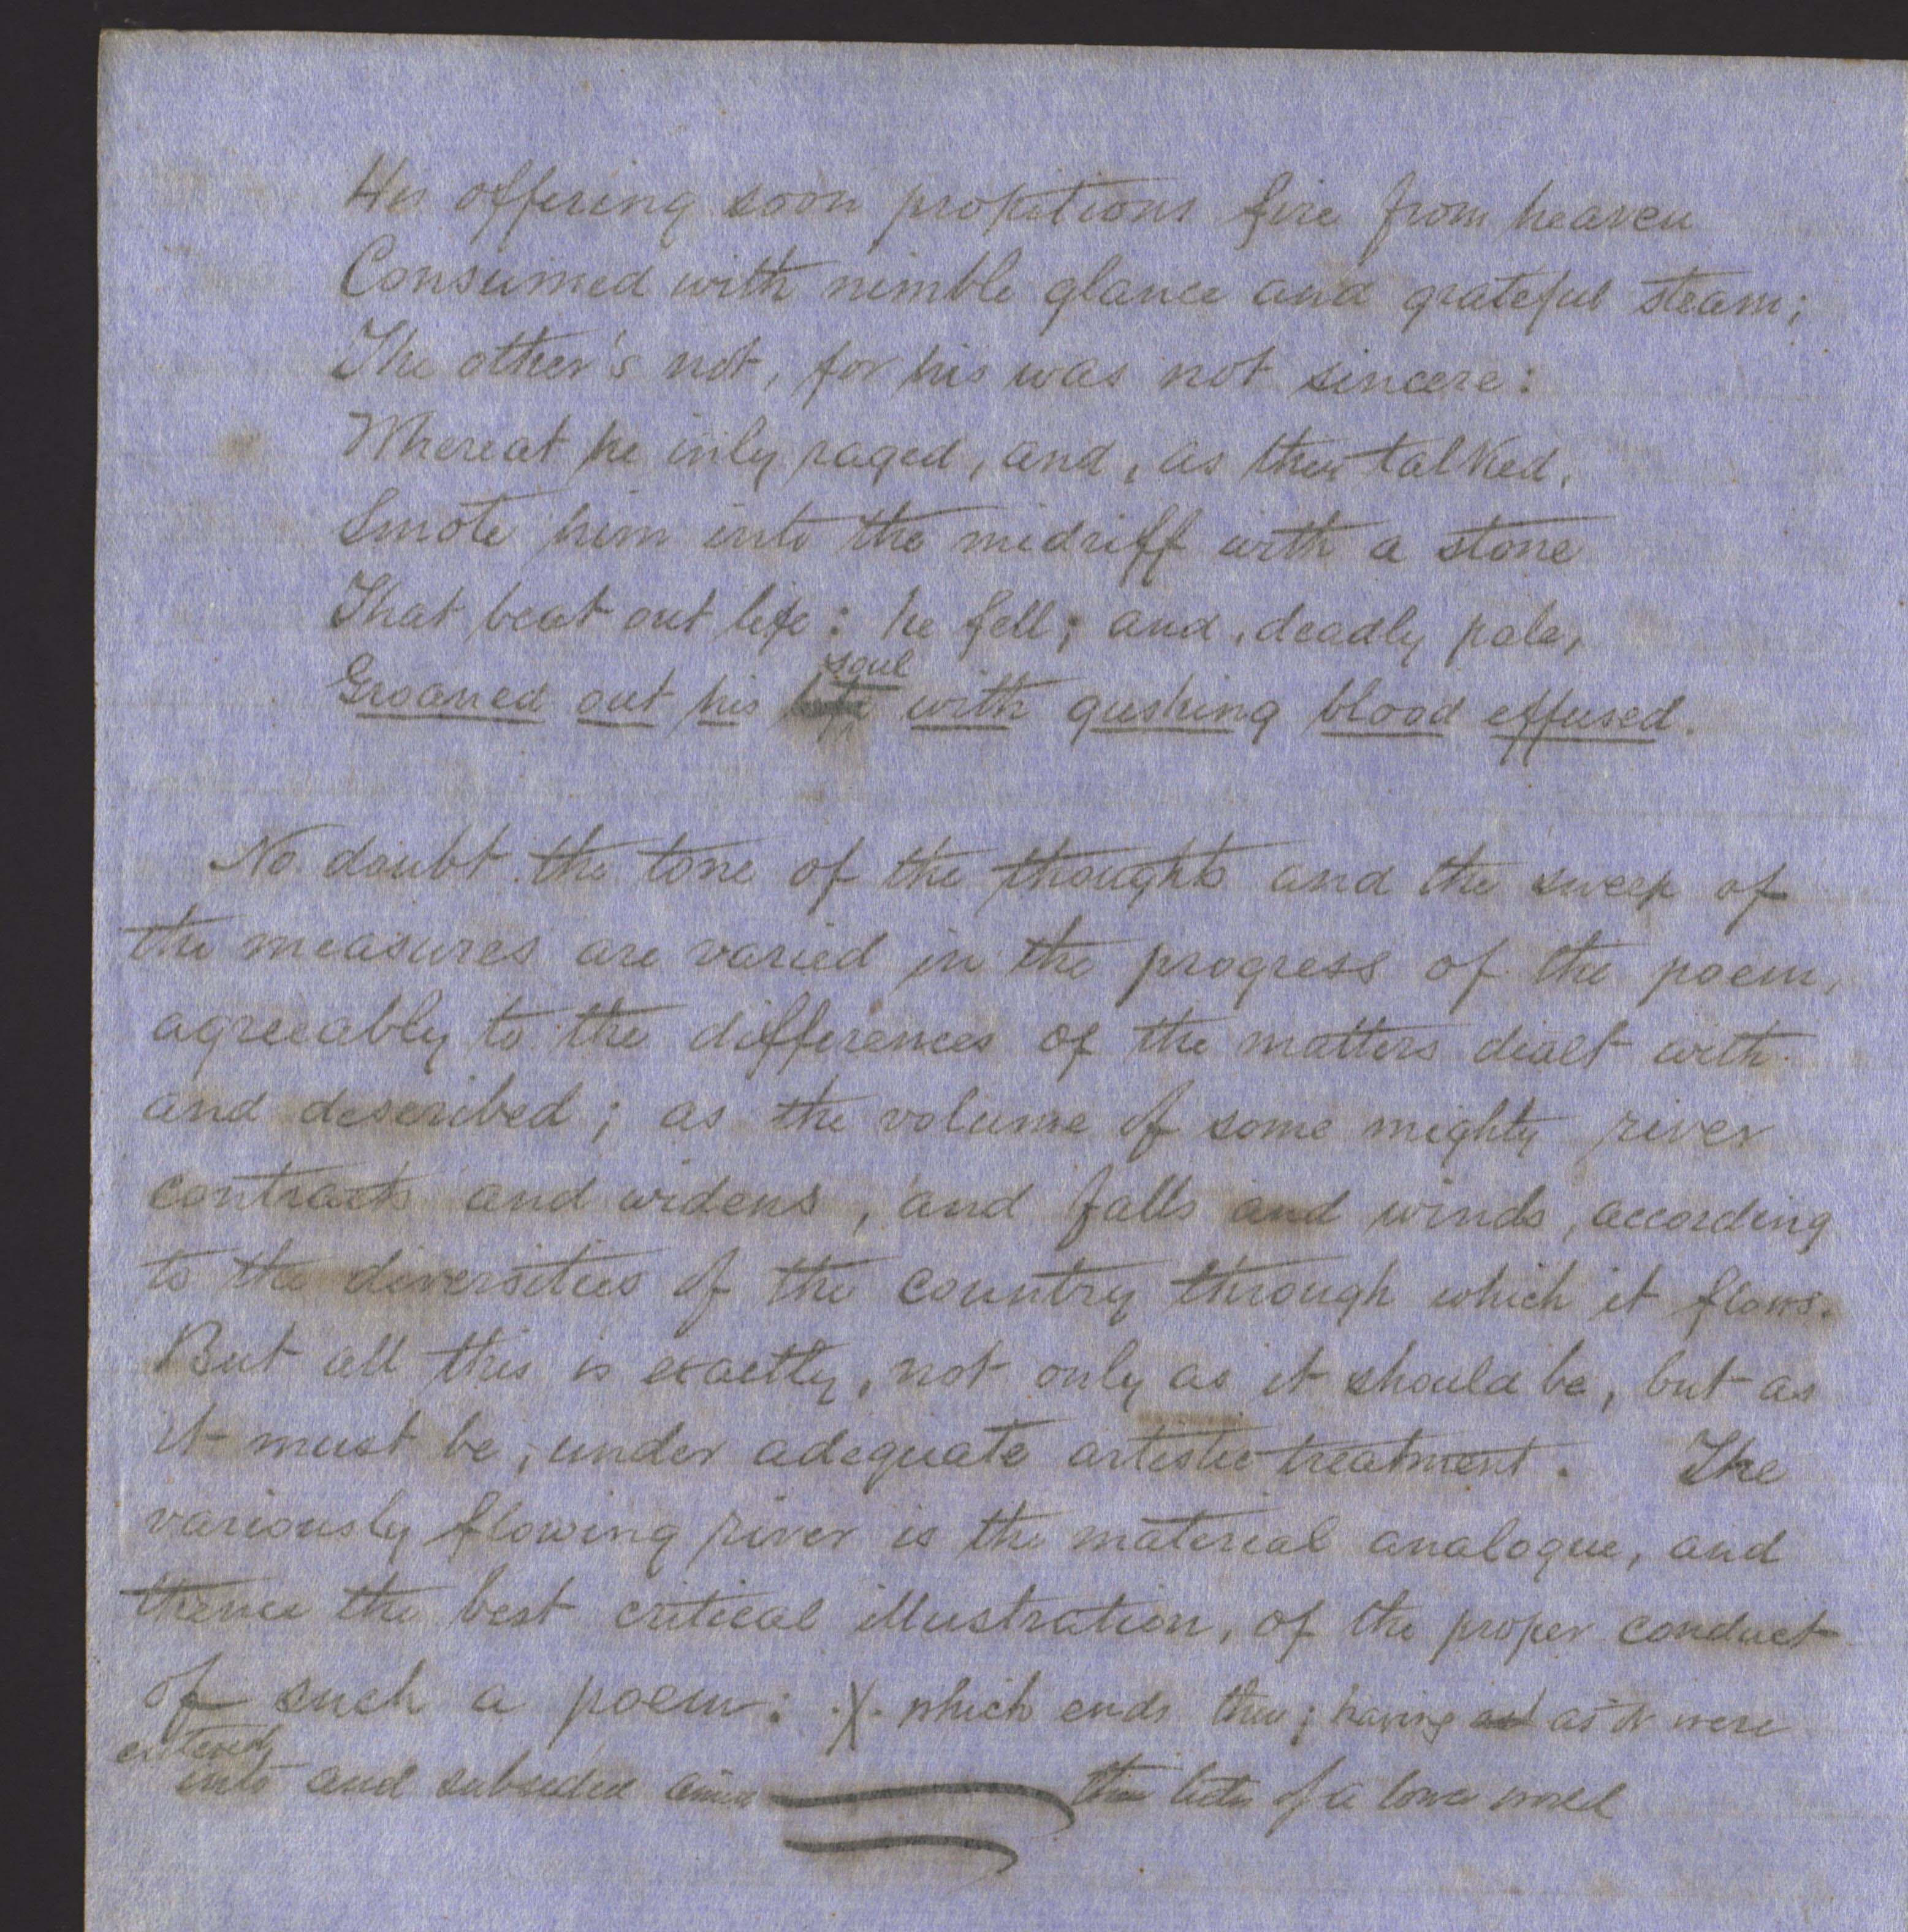 His offering soon propitious fire from heaven
Consumed with nimble glance and grateful steam;
The other's not, for his was not sincere:
Whereat he inly raged, and, as they talked,
Smote him into the midriff with a stone
That beat out life: he fell; and, deadly pale,
soul
Groaned out his with gushing blood effused.
No doubt the tone of the thoughts and the sweep of
the measures are varied in the progress of the poem,
agreeably to the differences of the matters dealt with
and described; as the volume of some mighty river
contracts and widens, and falls and winds, according
to the diversities of the country through which it flows.
But all this is exactly, not only as it should be, but as
it must be, under adequate artistic treatment. The
variously flowing river is the material analogue, and
thence the best critical illustration, of the proper conduct
of such a poem: X which ends thus; having as it were
entered
into and subsided the of a lower